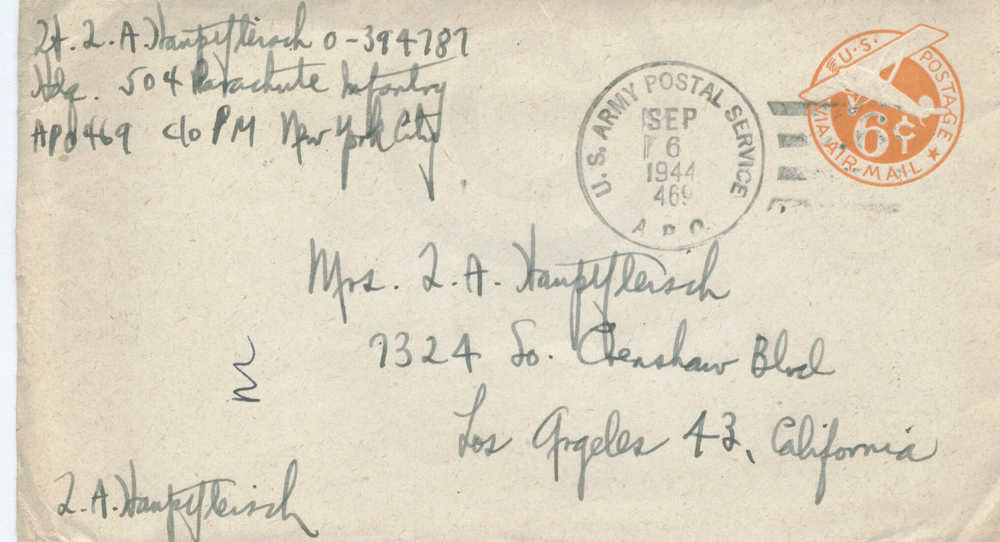 Lt. L. A. Hauptfleisch O-394787
Hdq. 504 Parachute Infantry
APO 469 c/o PM New York City
U.S. ARMY POSTAL SERVICE
SEP
6
1944
469
A.P.O.
U.S. POSTAGE
6¢
VIA AIR MAIL
Mrs. L. A. Hauptfleisch
7324 So. Crenshaw Blvd
Los Angeles 43, California
L. A. Hauptfleisch